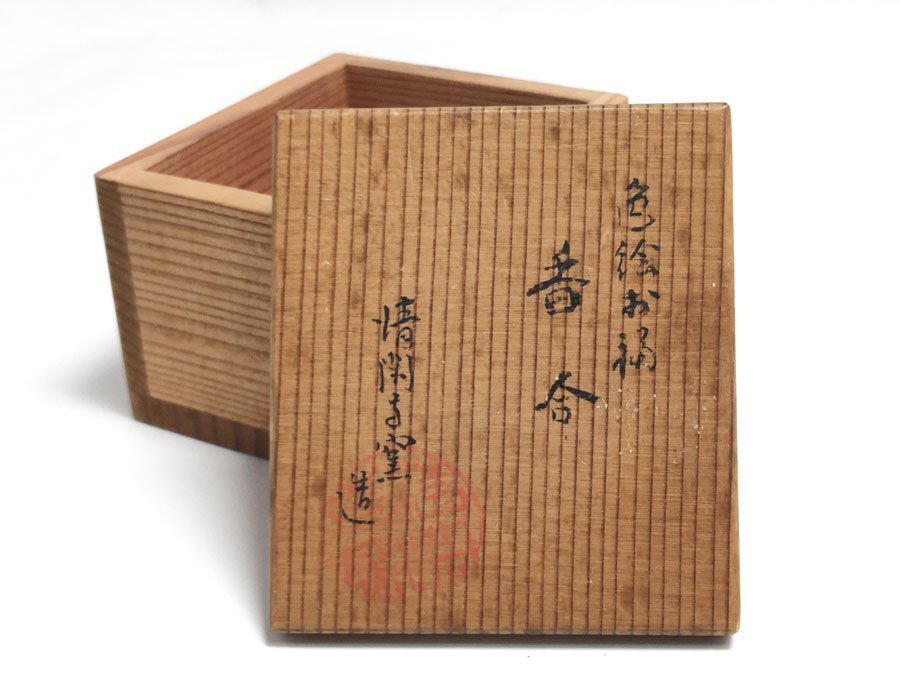 色絵お福
香合
清閑寺窯
造